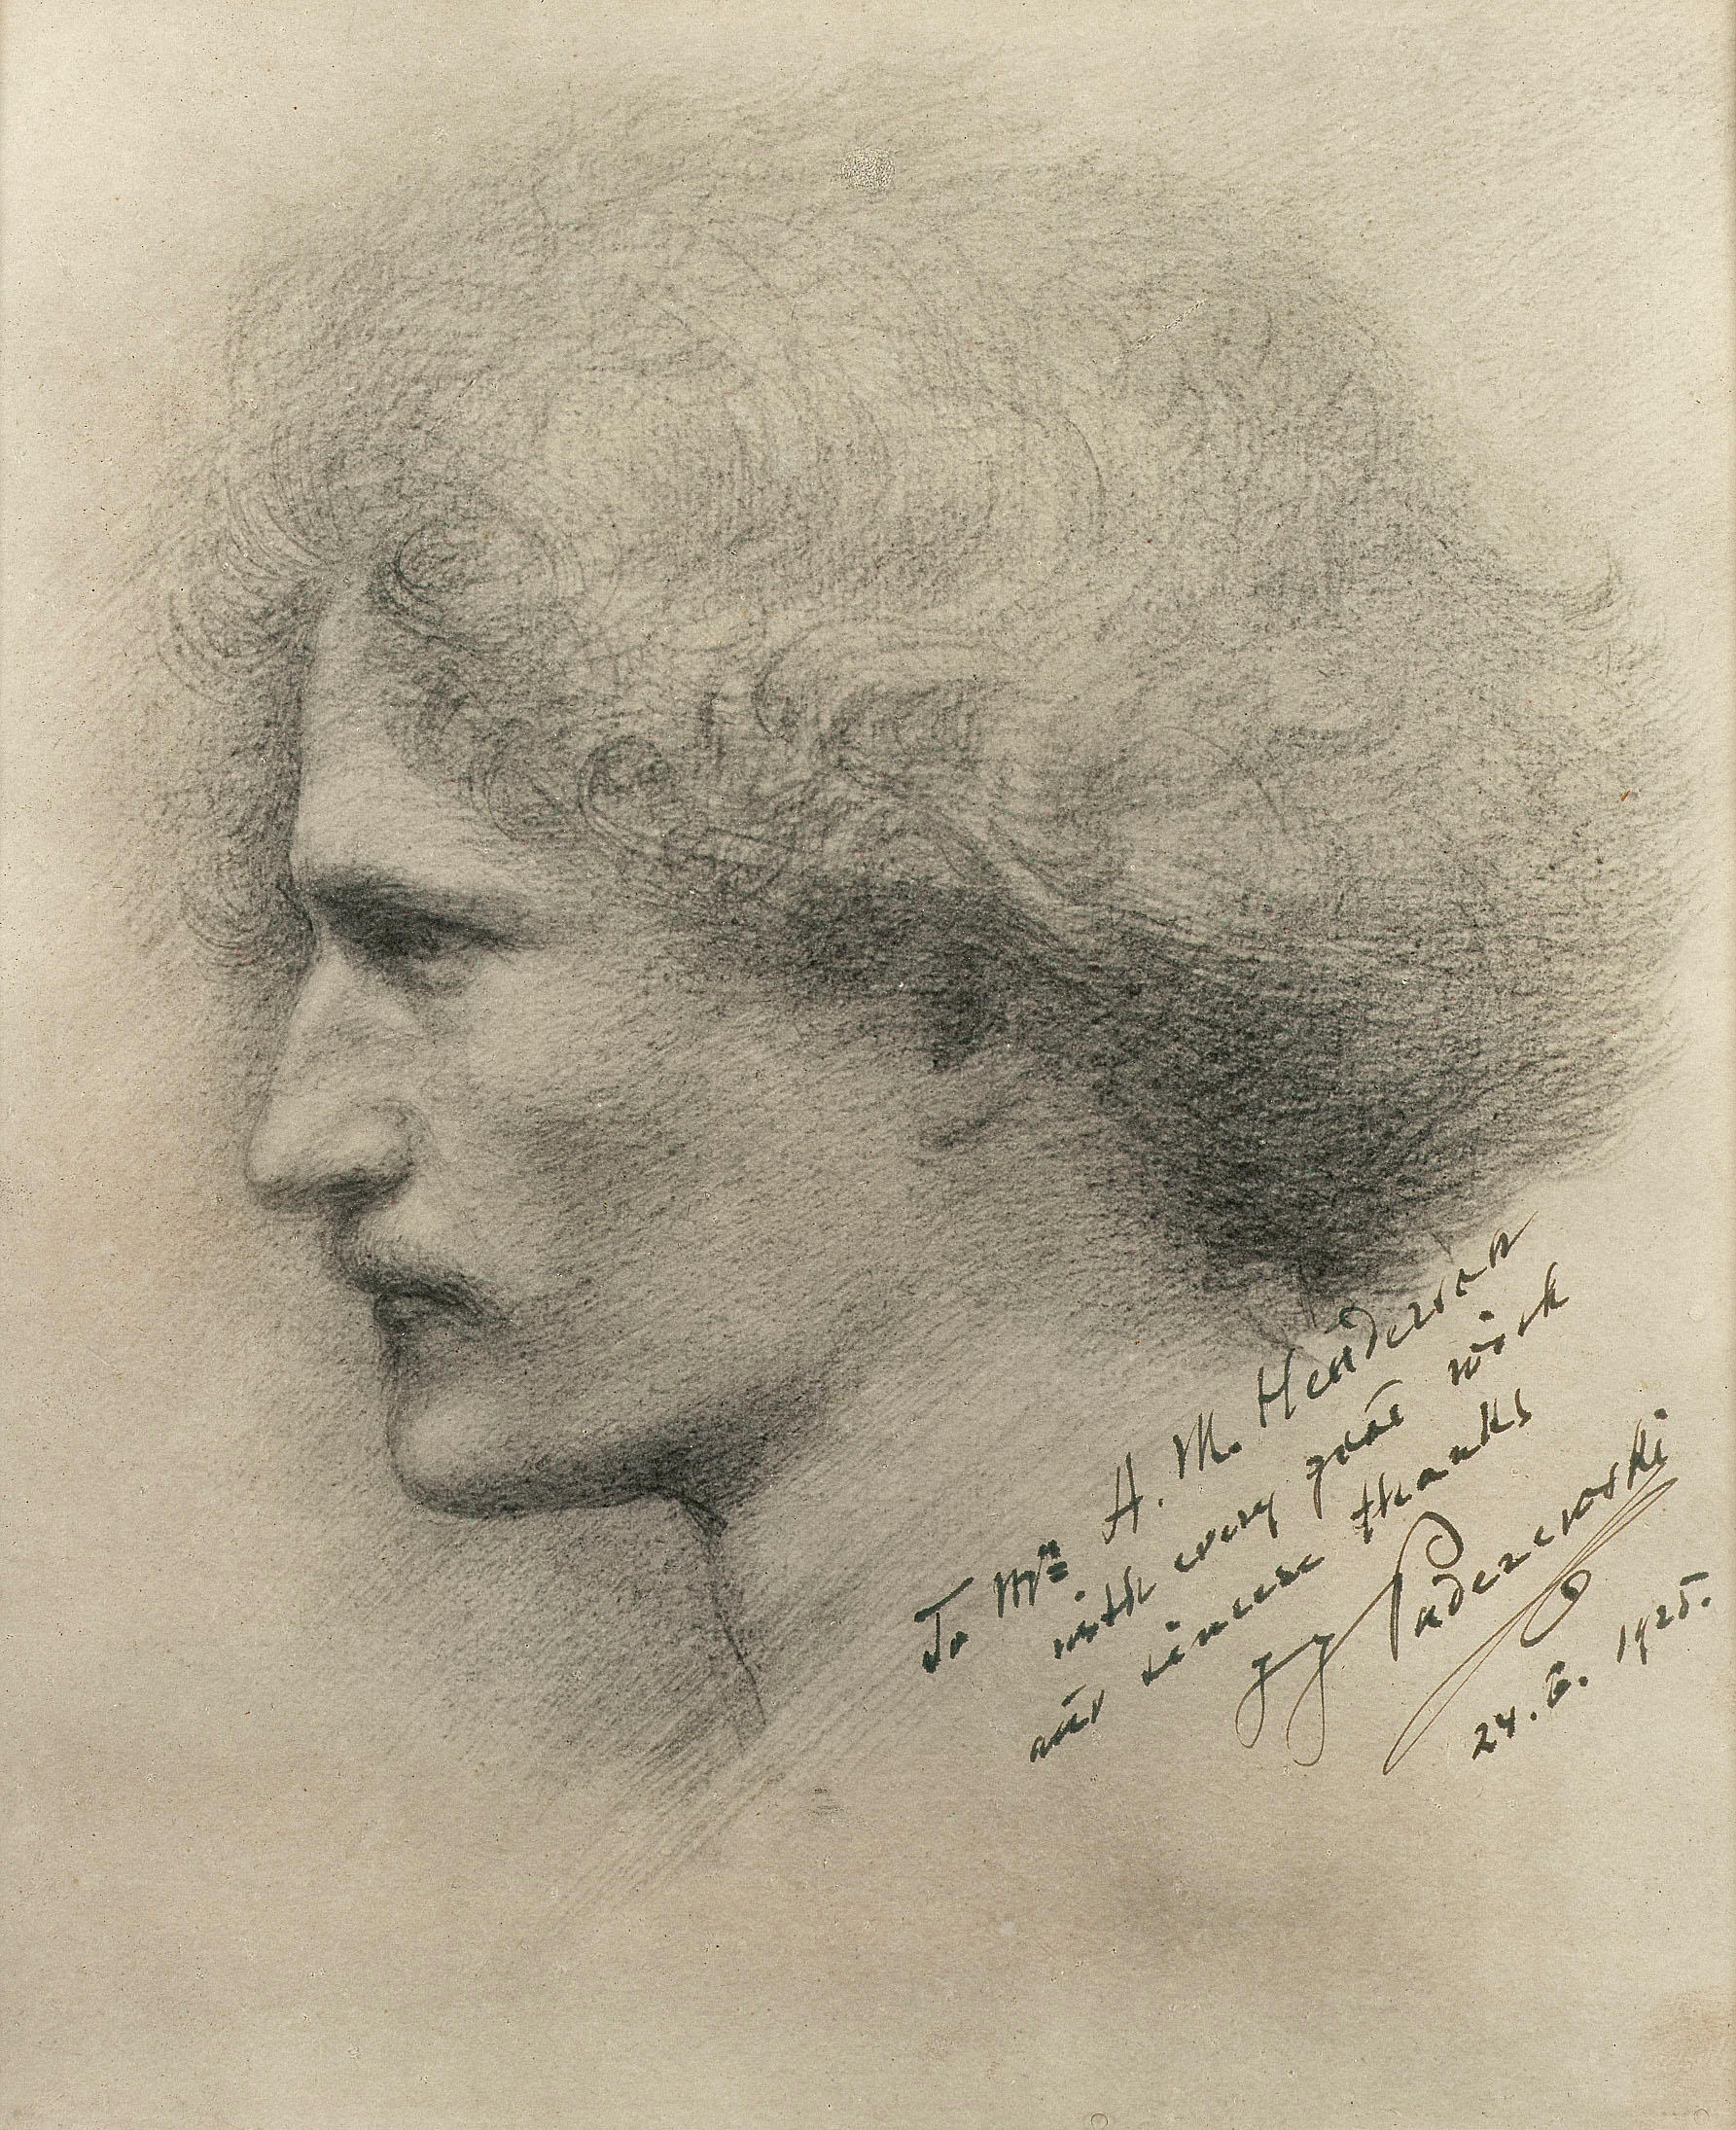 To Mr A. M. Henderson
with every good wish
and sincere thanks
I J Paderewski
24. 6. 1925.